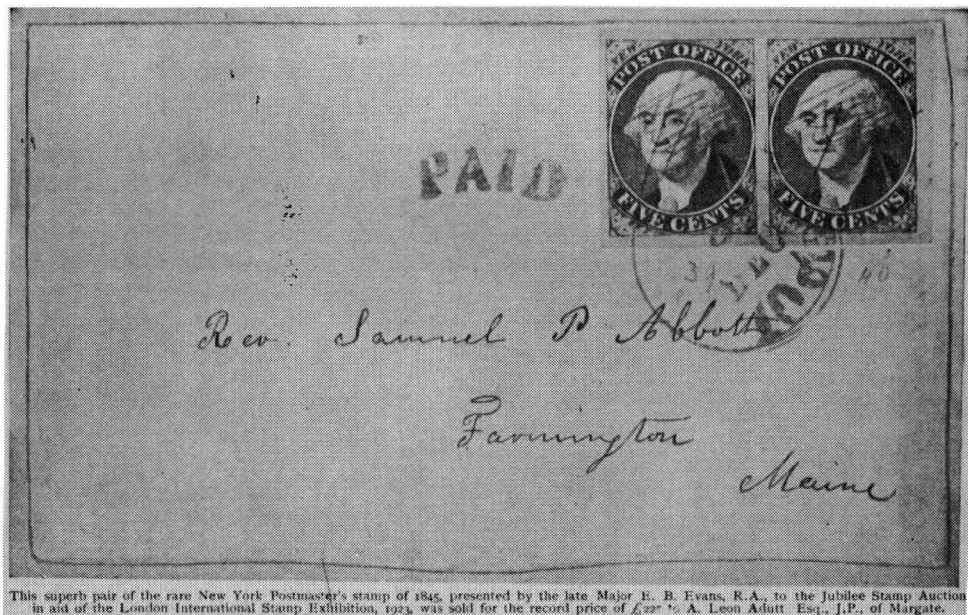 NEW YORK NEW YORK
POST OFFICE POST OFFICE
FIVE CENTS FIVE CENTS
PAID
DEC
Rev. Samuel P Abbott
Farmington
Maine
This superb pair of the rare New York Postmaster's stamp of 1845, presented by the late Major E. B. Evans, R.A., to the Jubilee Stamp Auction
in aid of the London International Stamp Exhibition, 1923, was sold for the record price of A. Leon Adutt Esq., J.P., of Margate.